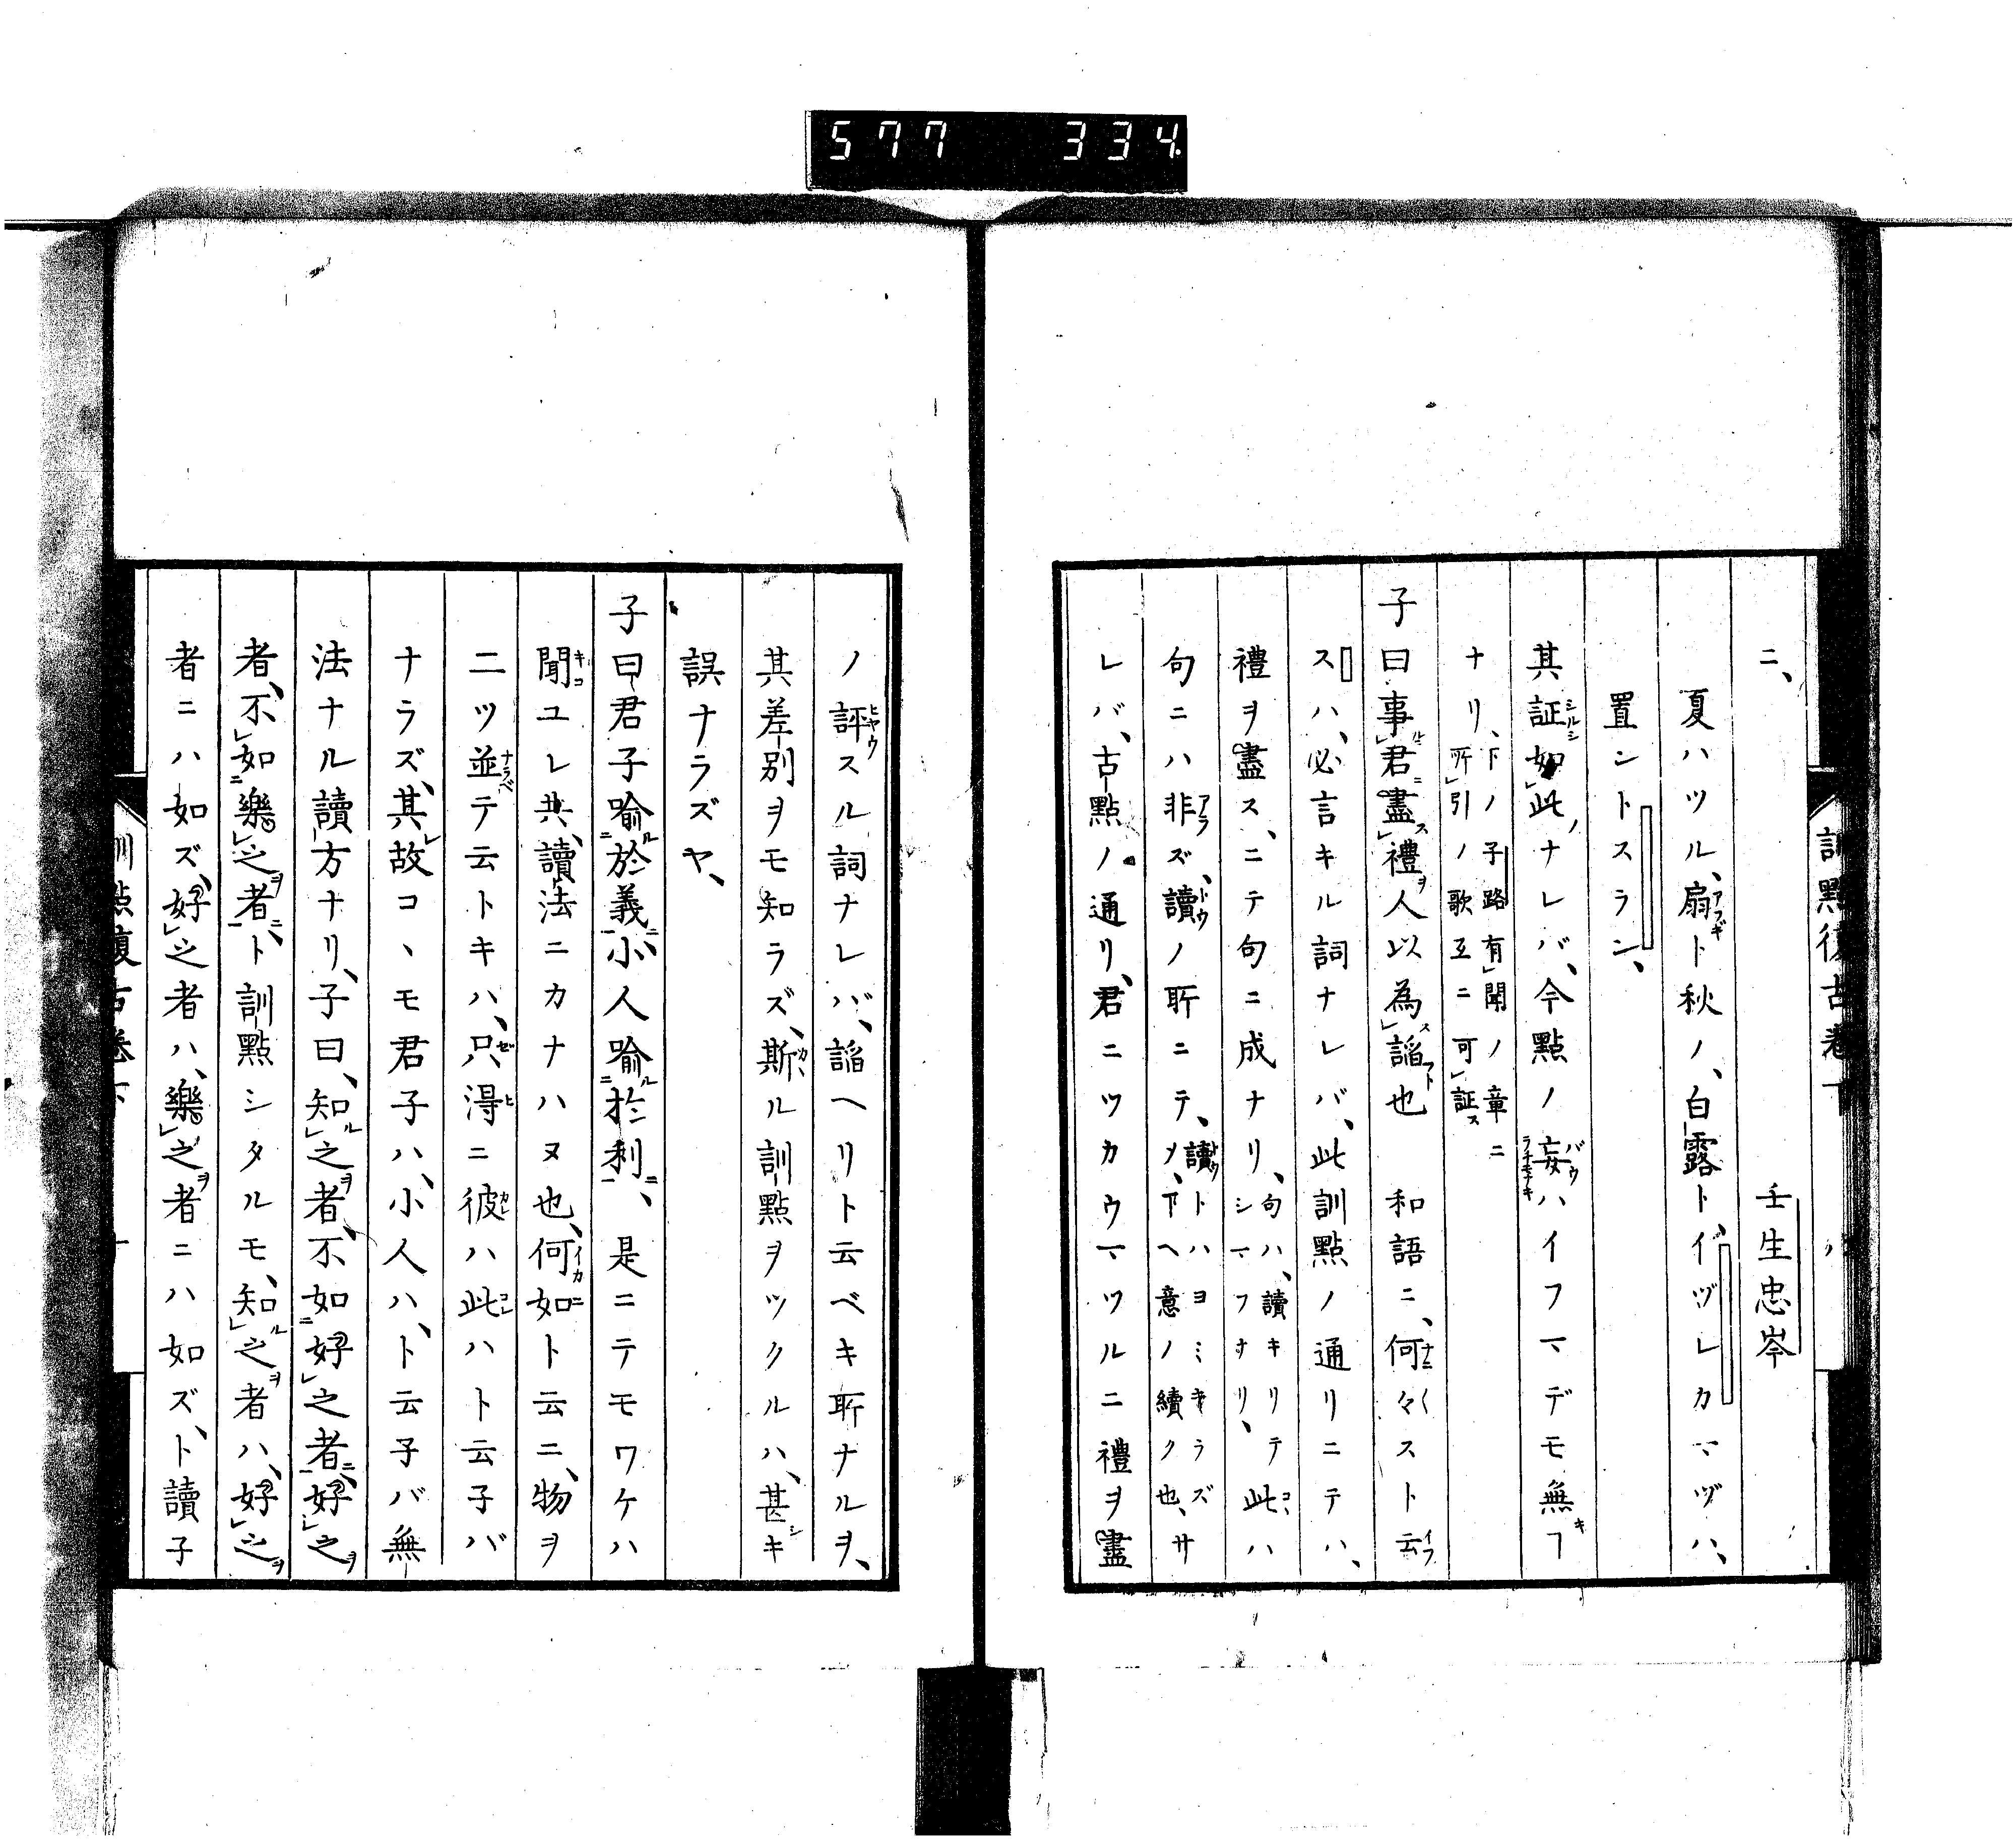 577 334
訓點復古卷下
ニ、壬生忠岑
夏ハツル、扇ト秋ノ、白露トイヅレカマヅハ、
置ントスラン、
其証如此ナレバ、今點ノ妄ハイフマデモ無ヿ
ナリ、下ノ子路有聞ノ章ニ所引ノ歌互ニ可証
子曰事君盡禮人以為諂也 和語ニ、何々スト云
スハ、必言キル詞ナレバ、此訓點ノ通リニテハ、
禮ヲ盡ス、ニテ句ニ成ナリ、句ハ、讀キリテ此ハシマフナリ、
句ニハ非ズ、讀ノ所ニテ、讀トハヨミキラズ〆、下ヘ意ノ續ク也、サ
レバ、古點ノ通リ、君ニツカウマツルニ禮ヲ盡
ノ評スル詞ナレバ、諂ヘリト云ベキ所ナルヲ、
其差別ヲモ知ラズ、斯ル訓點ヲツクルハ、甚キ
誤ナラズヤ、
子曰君子喩於義、小人喩於利、是ニテモワケハ
聞ユレ共、讀法ニカナハヌ也、何如ト云ニ、物ヲ
二ツ並テ云トキハ、只得ニ彼ハ此ハト云子バ
ナラズ、其故コヽモ君子ハ、小人ハ、ト云子バ無
法ナル讀方ナリ、子曰、知之者、不如好之者、好之
者、不如樂之者、ト訓點シタルモ、知之者ハ、好之
者ニハ如ズ、好之者ハ、樂之者ニハ如ズ、ト讀子
訓點復古卷下